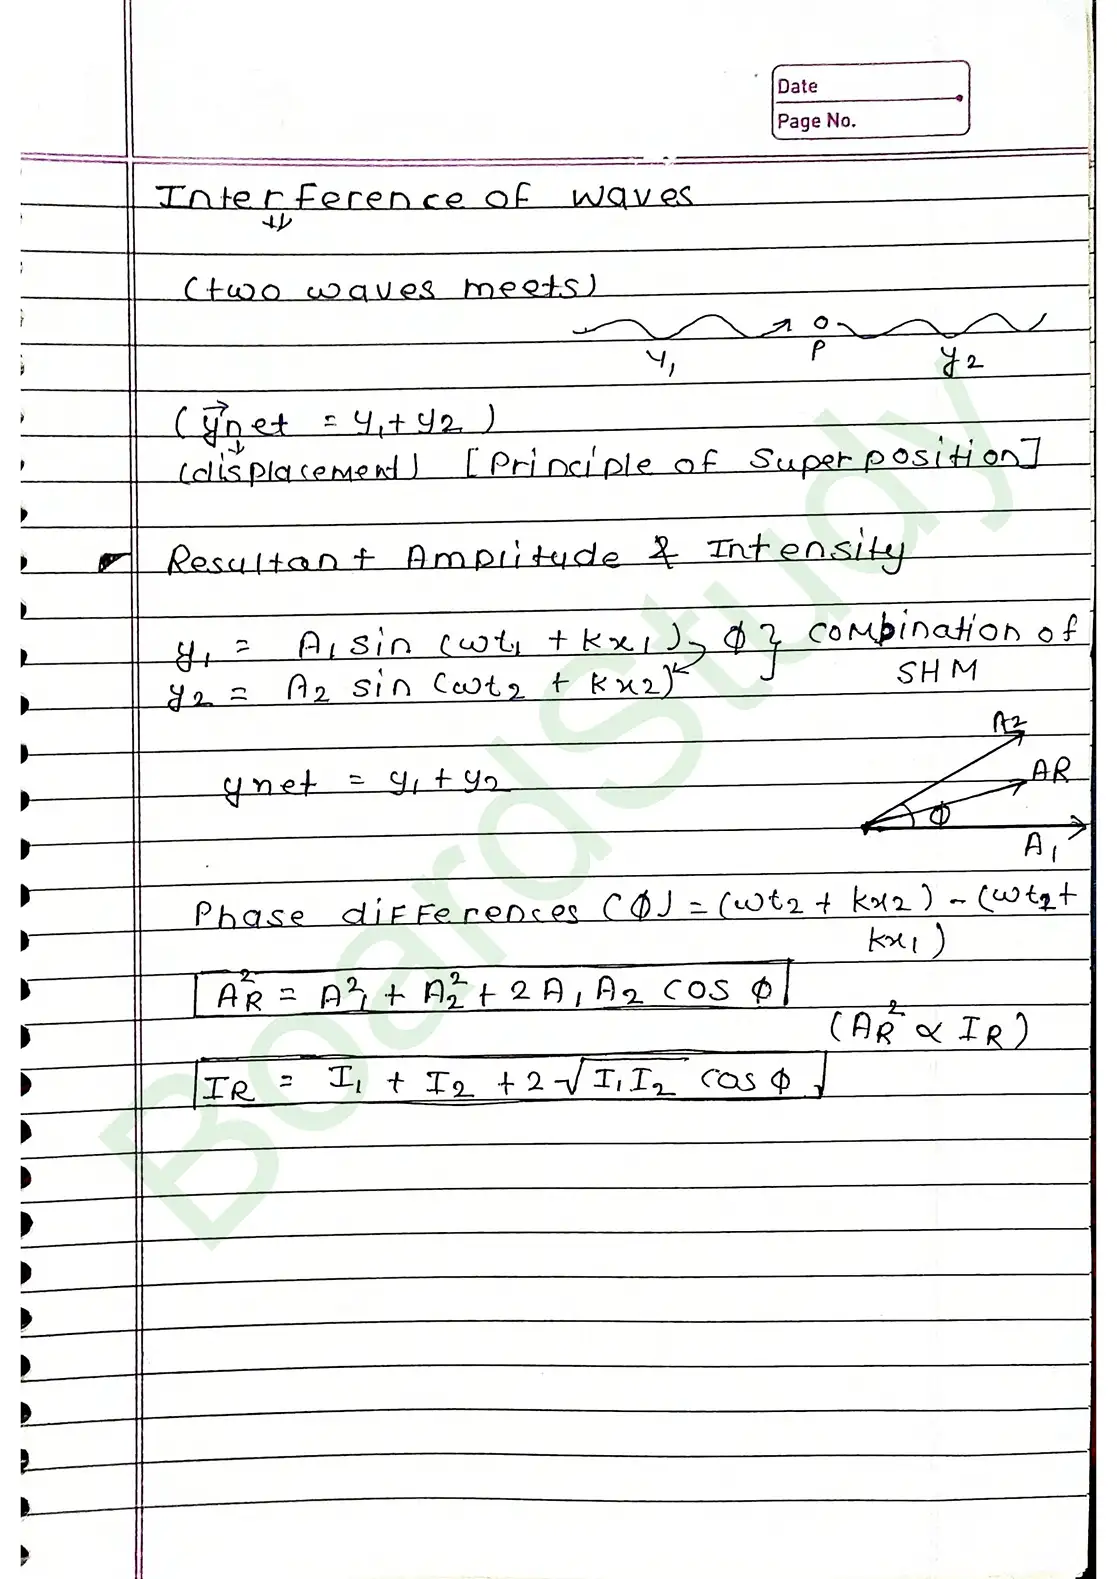 Date
Page No.
Interference of waves
(two waves meets)
y₁ P y₂
(y⃗net = y₁ + y₂)
(displacement) [Principle of Superposition]
Resultant Amplitude & Intensity
y₁ = A₁ sin (ωt₁ + kx₁) ϕ } combination of
y₂ = A₂ sin (ωt₂ + kx₂) SHM
A₂
ynet = y₁ + y₂ AR
ϕ
A₁
Phase differences (ϕ) = (ωt₂ + kx₂) - (ωt₂ +
kx₁)
AR² = A₁² + A₂² + 2A₁A₂ cos ϕ
(AR² ∝ IR)
IR = I₁ + I₂ + 2√I₁I₂ cos ϕ
BoardStudy